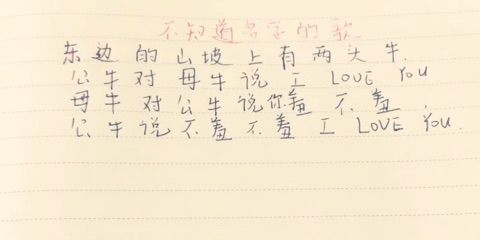 不知道名字的歌
东边的山坡上有两头牛.
公牛对母牛说 I LOVE YOU
母牛对公牛说你羞不羞.
公牛说不羞不羞 I LOVE YOU.